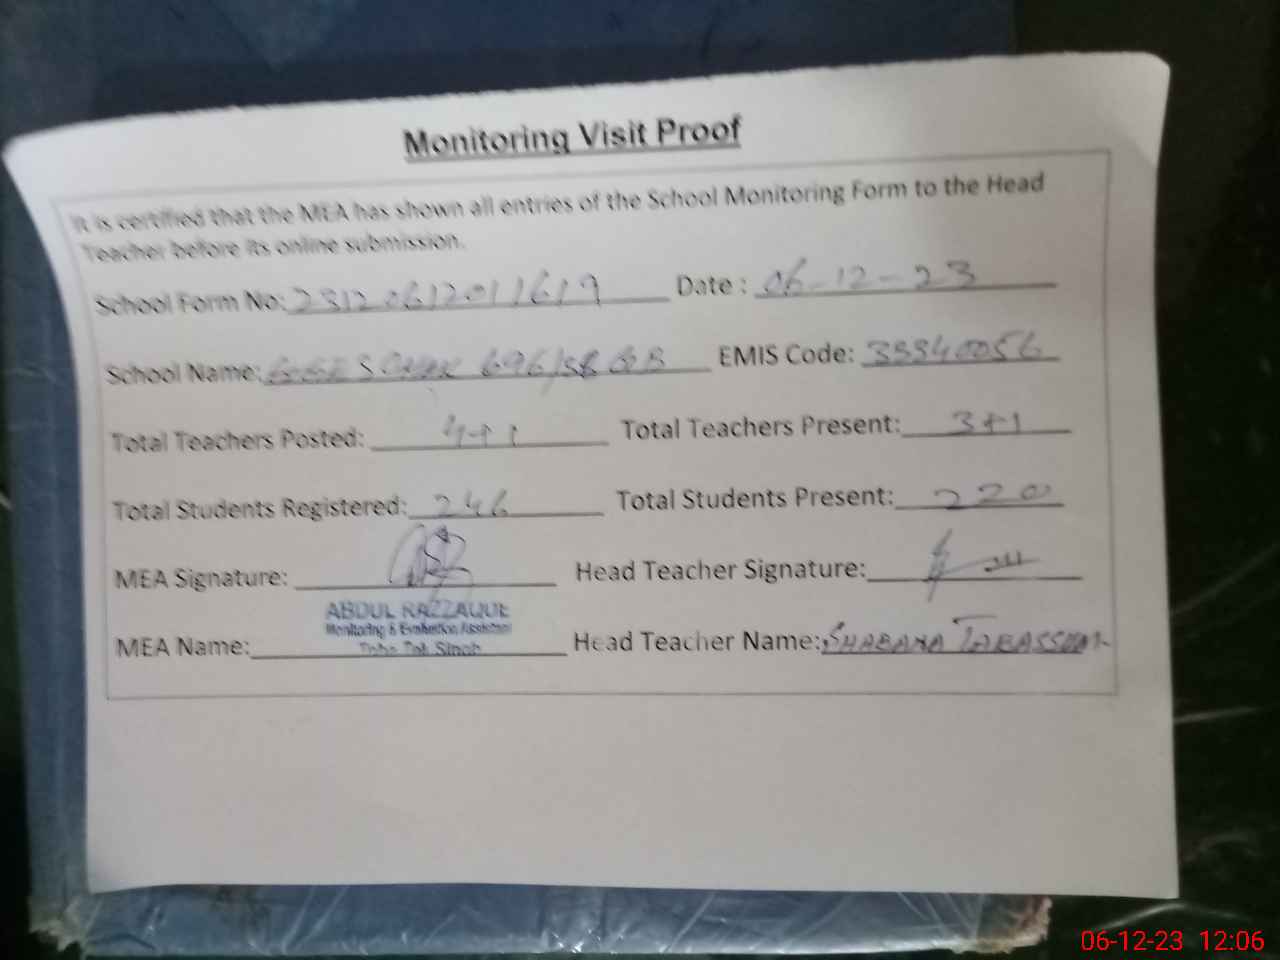 Monitoring Visit Proof
It is certified that the MEA has shown all entries of the School Monitoring Form to the Head
Teacher before its online submission.
School Form No: 23120612011619 Date : 06-12-23
School Name: 696/38 GB EMIS Code:
Total Teachers Posted: 4+1 Total Teachers Present: 3+1
Total Students Registered: 246 Total Students Present: 220
MEA Signature: Head Teacher Signature:
ABDUL RAZZAQUE
Monitoring & Evaluation Assistant
Toba Tek Singh
MEA Name: Head Teacher Name: SHABANA TABASSUM
06-12-23 12:06